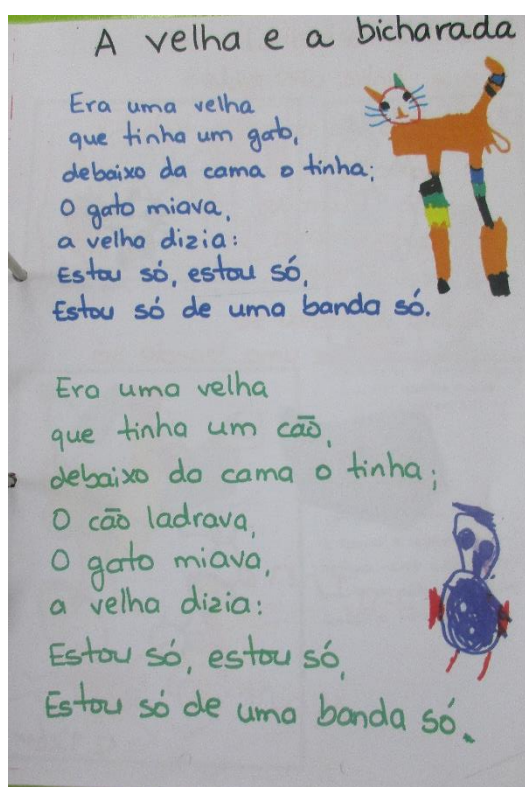 A velha e a bicharada
Era uma velha
que tinha um gato,
debaixo da cama o tinha;
O gato miava,
a velha dizia:
Estou só, estou só,
Estou só de uma banda só.
Era uma velha
que tinha um cão,
debaixo da cama o tinha;
O cão ladrava,
O gato miava,
a velha dizia:
Estou só, estou só,
Estou só de uma banda só.